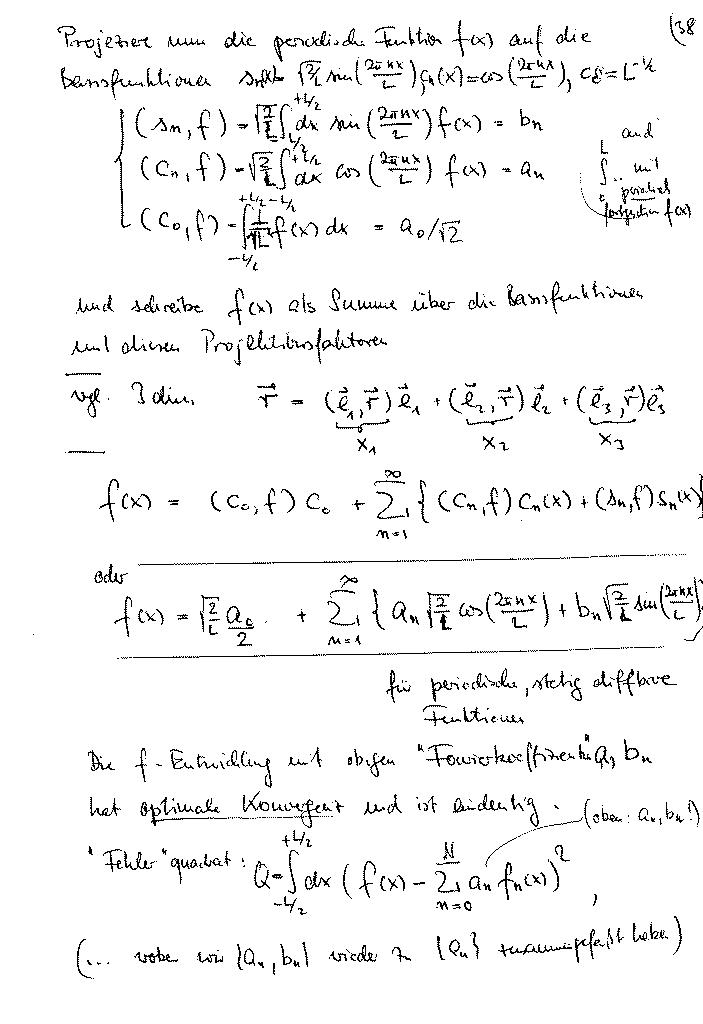 (38
Projeziere nun die periodische Funktion f(x) auf die
Basisfunktionen √(2/L) sin(2πnx/L), cn(x)=cos(2πnx/L), c0=L^-1/2
(sn, f) = √(2/L) ∫_{-L/2}^{+L/2} dx sin(2πnx/L) f(x) = bn
(cn, f) = √(2/L) ∫_{-L/2}^{+L/2} dx cos(2πnx/L) f(x) = an
(c0, f) = ∫_{-L/2}^{+L/2} 1/√L f(x) dx = a0/√2
auch
∫_0^L .. mit
periodisch
fortgesetztem f(x)
und schreibe f(x) als Summe über die Basisfunktionen
mit diesen Projektionsfaktoren
vgl. 3dim. r⃗ = (e⃗1, r⃗) e⃗1 + (e⃗2, r⃗) e⃗2 + (e⃗3, r⃗) e⃗3
x1 x2 x3
f(x) = (c0, f) c0 + Σ_{n=1}^∞ { (cn, f) cn(x) + (sn, f) sn(x) }
oder
f(x) = √(2/L) a0/2 + Σ_{n=1}^∞ { an √(2/L) cos(2πnx/L) + bn √(2/L) sin(2πnx/L) }
für periodische, stetig diffbare
Funktionen
Die f-Entwicklung mit obigen "Fourierkoeffizienten" an bn
hat optimale Konvergenz und ist eindeutig.
(oben: an, bn!)
"Fehler"quadrat: Q = ∫_{-L/2}^{+L/2} dx ( f(x) - Σ_{n=0}^N an fn(x) )^2 ,
(... wobei wir {an, bn} wieder zu {an} zusammengefaßt haben)